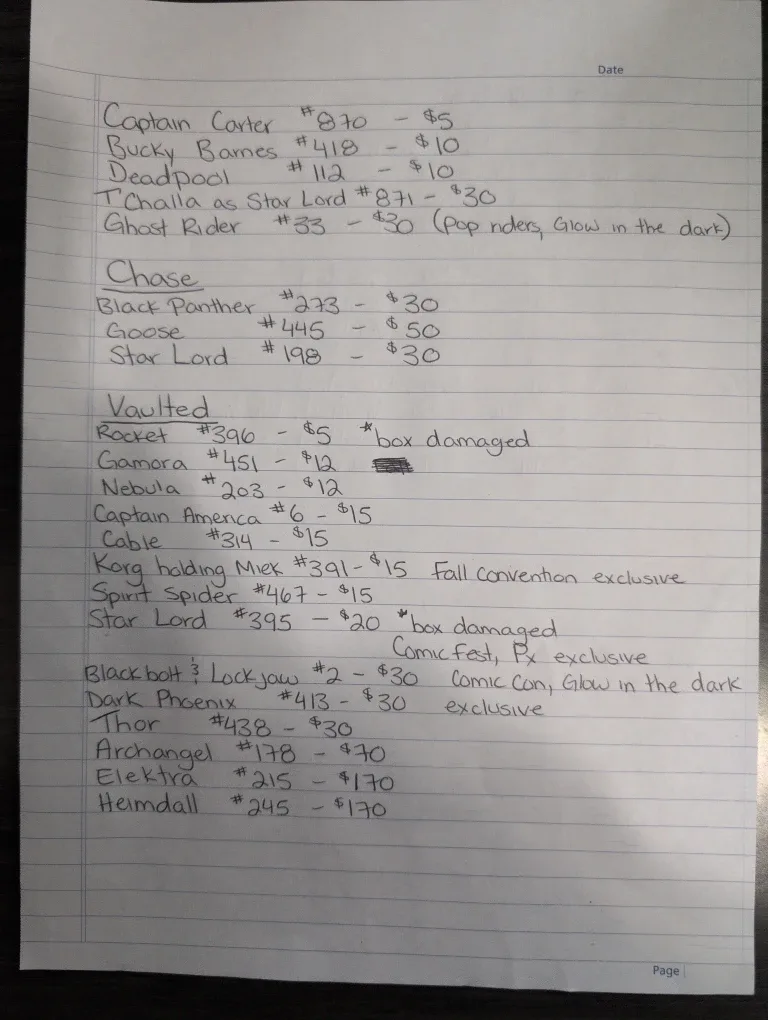 Date
Captain Carter #870 - $5
Bucky Barnes #418 - $10
Deadpool #112 - $10
T'Challa as Star Lord #871 - $30
Ghost Rider #33 - $30 (Pop riders, Glow in the dark)
Chase
Black Panther #273 - $30
Goose #445 - $50
Star Lord #198 - $30
Vaulted
Rocket #396 - $5 *box damaged
Gamora #451 - $12
Nebula #203 - $12
Captain America #6 - $15
Cable #314 - $15
Korg holding Miek #391 - $15 Fall Convention exclusive
Spirit Spider #467 - $15
Star Lord #395 - $20 *box damaged
Comic fest, Px exclusive
Blackbolt & Lockjaw #2 - $30 Comic Con, Glow in the dark
Dark Phoenix #413 - $30 exclusive
Thor #438 - $30
Archangel #178 - $70
Elektra #215 - $170
Heimdall #245 - $170
Page